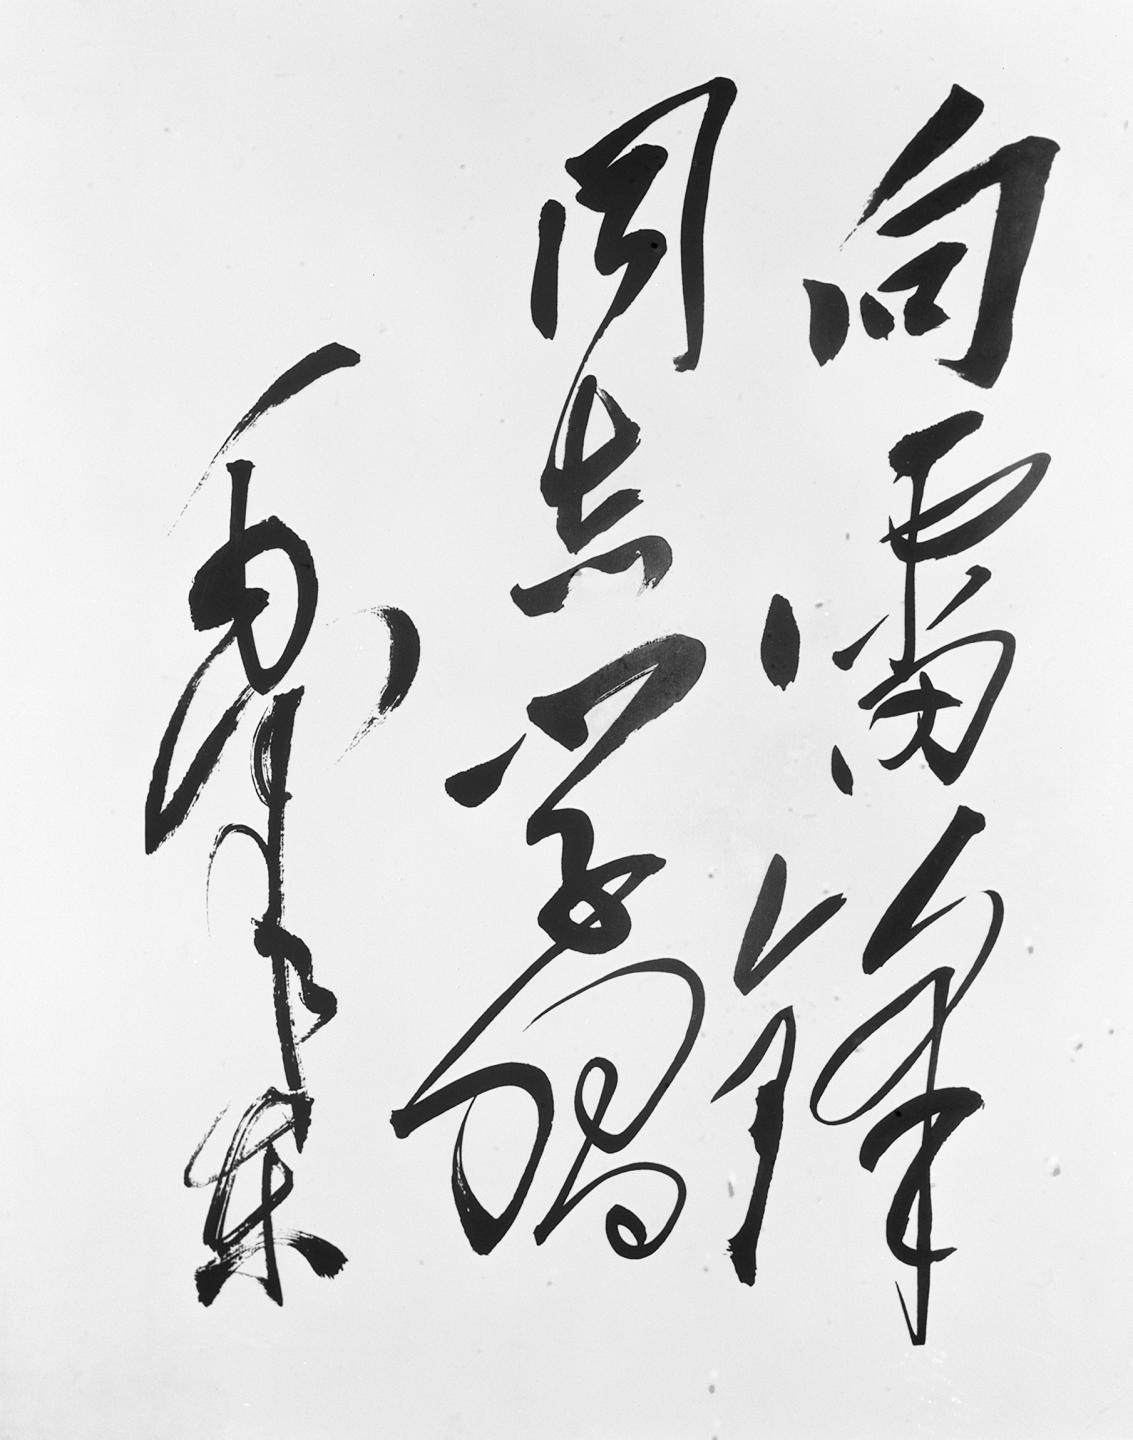 向雷锋
同志学習
毛澤东